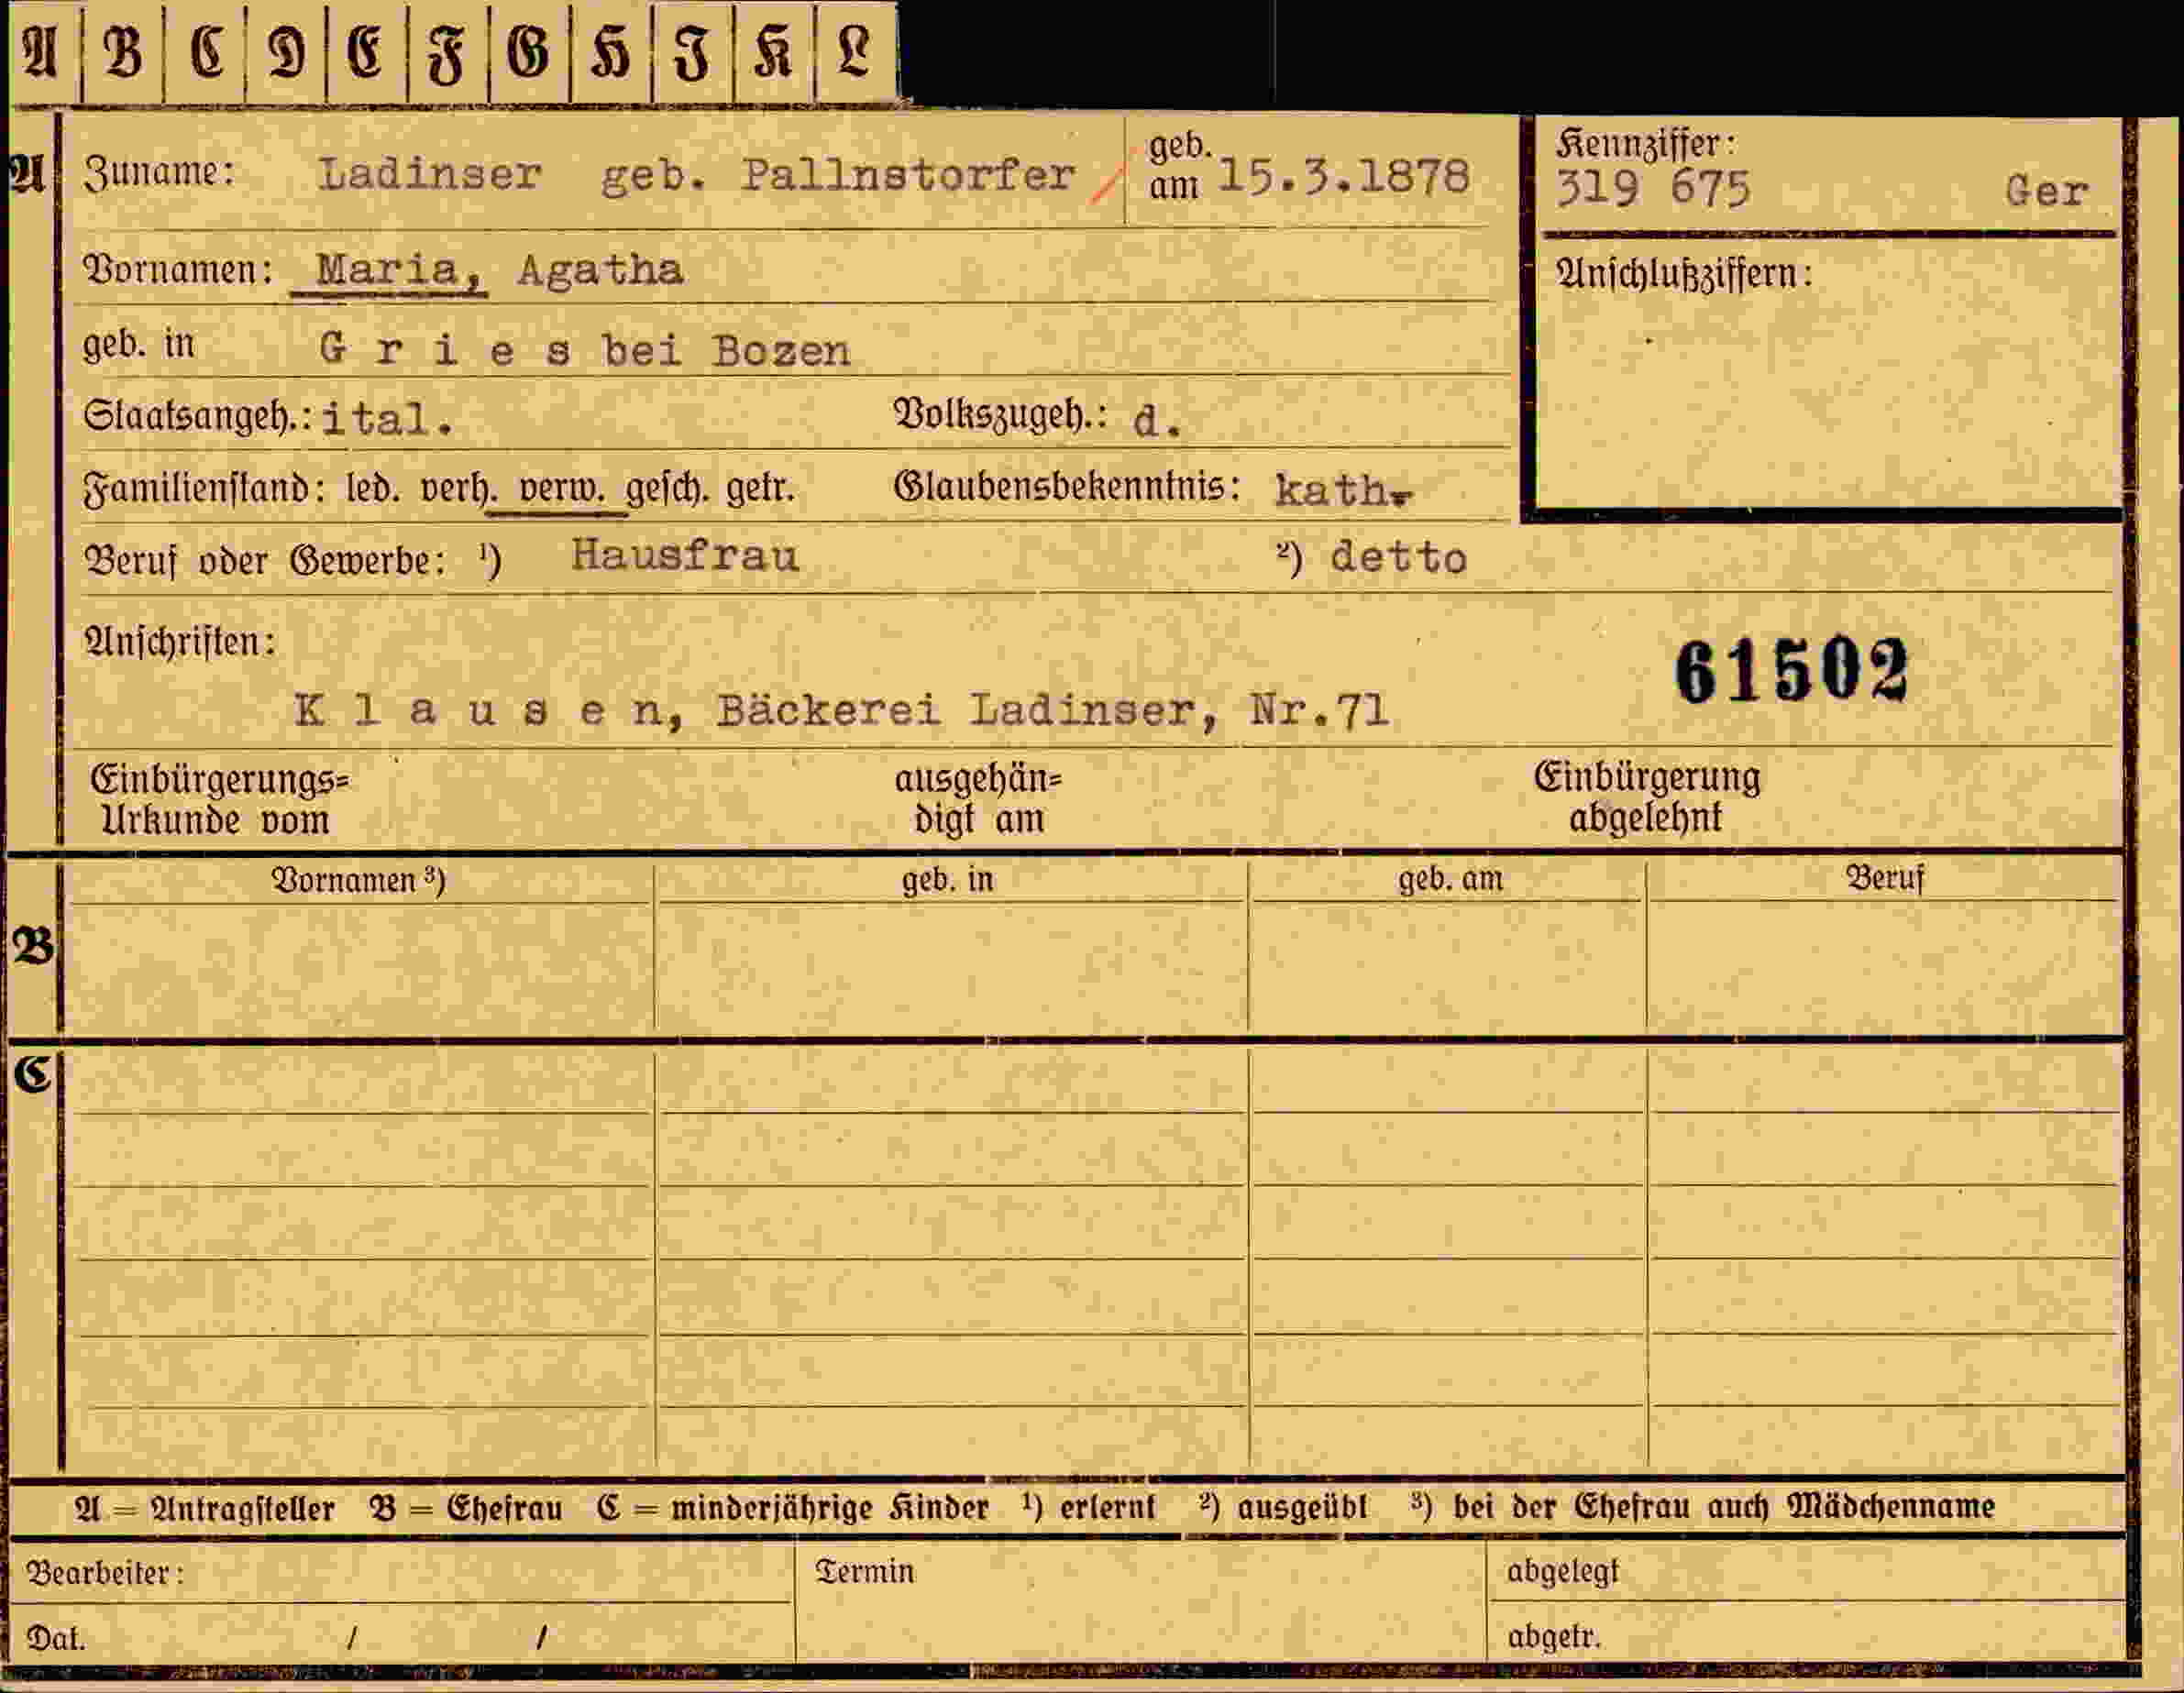 A B C D E F G H I K L
A Zuname: Ladinser geb. Pallnstorfer geb. am 15.3.1878
Kennziffer:
319 675 Ger
Vornamen: Maria, Agatha
Anschlußziffern:
geb. in G r i e s bei Bozen
Staatsangeh.: ital. Volkszugeh.: d.
Familienstand: led. verh. verw. gesch. getr. Glaubensbekenntnis: kath.
Beruf oder Gewerbe: ¹) Hausfrau ²) detto
Anschriften:
61502
K l a u s e n, Bäckerei Ladinser, Nr.71
Einbürgerungs= ausgehän= Einbürgerung
Urkunde vom digt am abgelehnt
Vornamen ³) geb. in geb. am Beruf
B
C
A = Antragsteller B = Ehefrau C = minderjährige Kinder ¹) erlernt ²) ausgeübt ³) bei der Ehefrau auch Mädchenname
Bearbeiter: Termin abgelegt
Dat. / / abgetr.